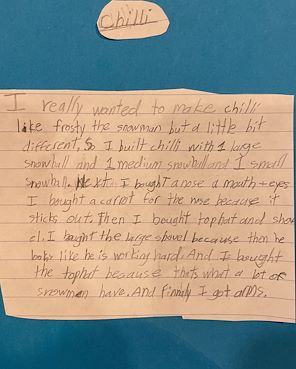 Chilli
I really wanted to make chilli
like frosty the snowman but a little bit
different. So I built chilli with 1 large
snowball and 1 medium snowball and 1 small
snowball. Next I bought a nose a mouth + eyes
I bought a carrot for the nose because it
sticks out. Then I bought tophat and shov
el. I bought the large shovel because then he
looks like he is working hard. And I bought
the tophat because thats what a lot of
snowman have. And finnaly I got arms.